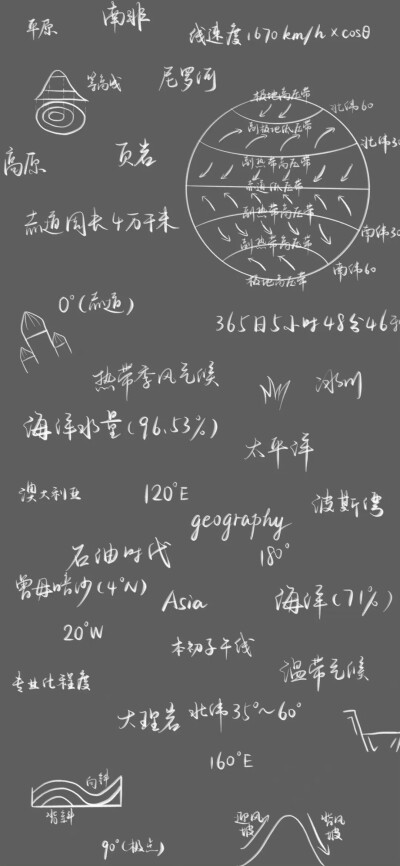 平原
南非
线速度1670 km/h×cosθ
等高线
尼罗河
极地高压带
北纬60
副极地低压带
北纬30
高原
页岩
副热带高压带
赤道低压带
副热带高压带
赤道周长4万千米
南纬30
副热带高压带
南纬60
极地高压带
0°(赤道)
365日5小时48分46秒
热带季风气候
冰川
海洋水量(96.53%)
太平洋
澳大利亚
120°E
波斯湾
geography
石油时代
180°
曾母暗沙(4°N)
Asia
海洋(71%)
20°W
本初子午线
温带气候
专业化程度
大理岩
北纬35°~60°
160°E
向斜
背斜
迎风坡
背风坡
90°(极点)